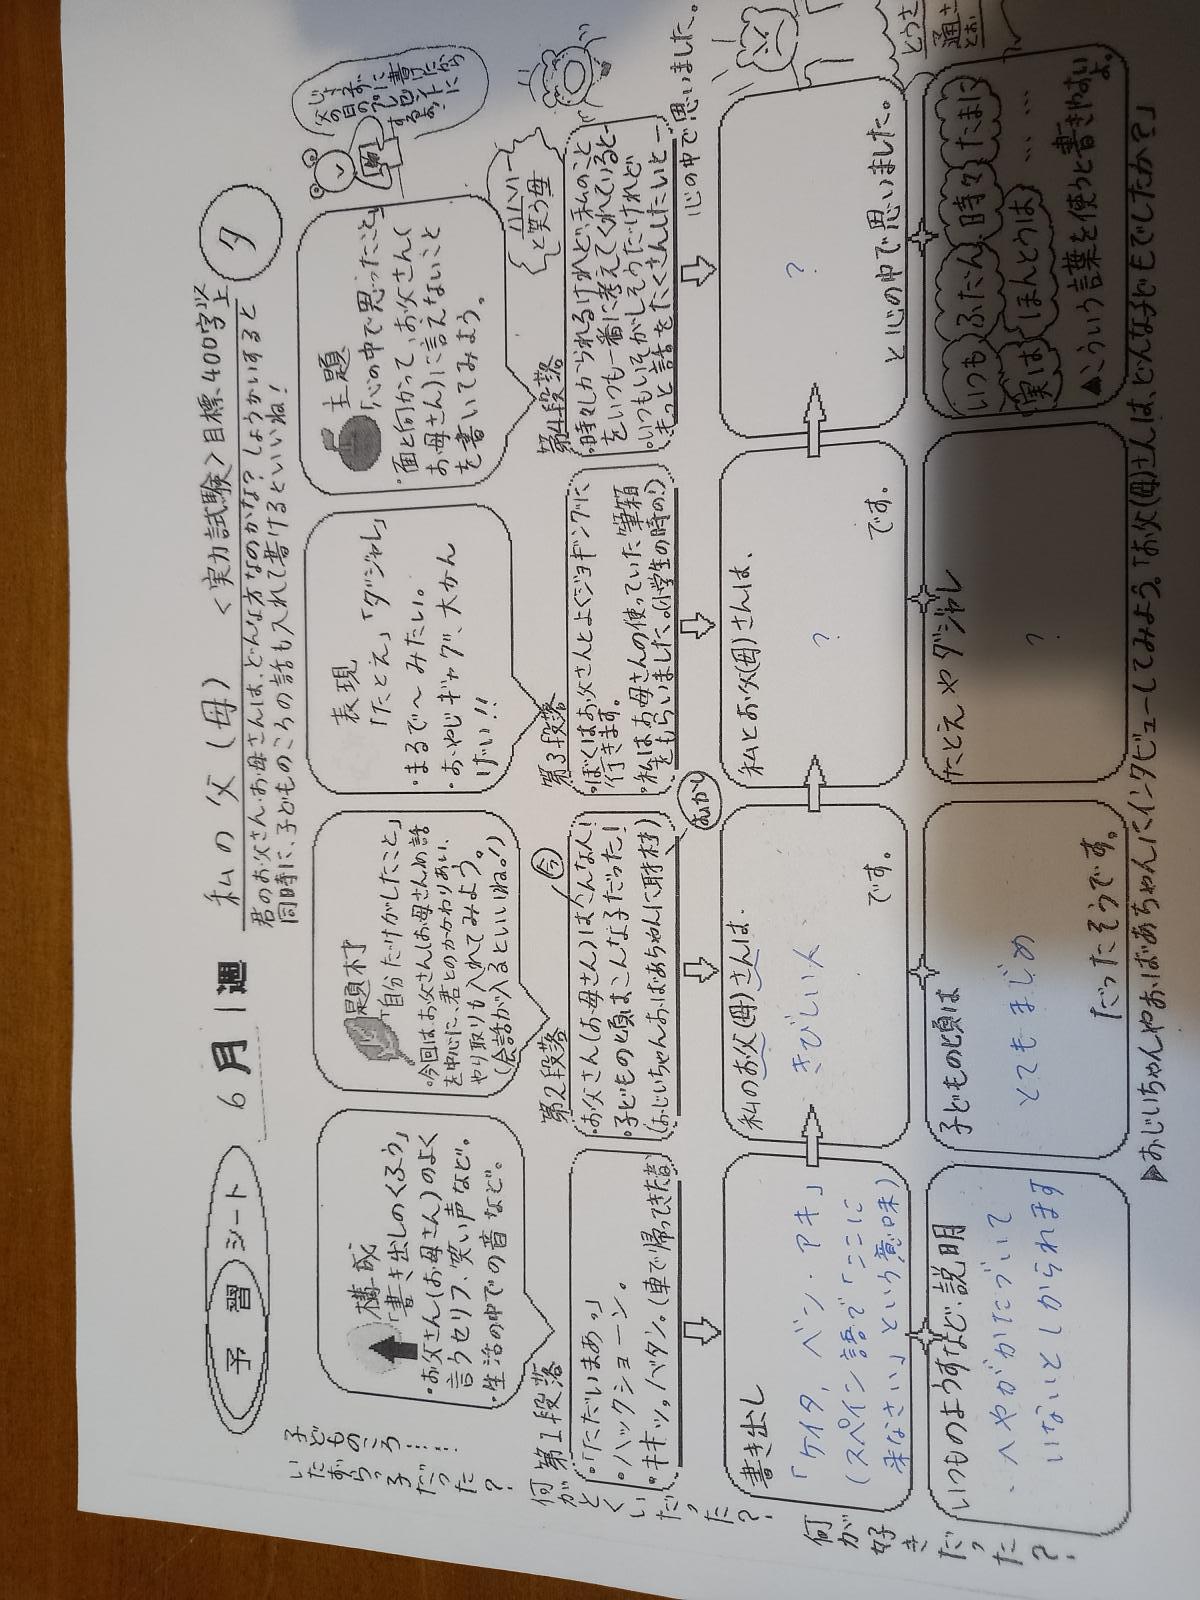 予習シート
6月1週
私の父(母)
<実力試験>目標、400字以上
タ
君のお父さん・お母さんは、どんな方なのかな?しょうかいすると
同時に、子どものころの話も入れて書けるといいね!
構成
「書き出しのくふう」
・お父さん(お母さん)のよく
言うセリフ、笑い声など。
・生活の中での音など。
題材
「自分だけがしたこと」
・今回はお父さん(お母さん)の話
を中心に、君とのかかわりあい、
やり取りも入れてみよう。
(会話が入るといいね。)
表現
「たとえ」「ダジャレ」
・まるで〜みたい。
・おやじギャグ、大かん
げい!!
主題
「心の中で思ったこと」
・面と向かって、お父さん(
お母さん)に言えないこと
を書いてみよう。
子どものころ……
いたずらっ子だった?
何がとくいだった?
何が好きだった?
第1段落
・「ただいまあっ」
・ハックショーン。
・キキッ、バタン。(車で帰ってきた音)
第2段落
今
・お父さん(お母さん)はこんな人!
・子どもの頃はこんな子だった!
(おじいちゃんおばあちゃんに取材)
むかし
第3段落
・ぼくはお父さんとよくジョギングに
行きます。
・私はお母さんの使っていた筆箱
をもらいました。(小学生の時の!)
第4段落
・時々しかられるけれど、私のこと
をいつも一番に考えてくれていると―
・いつもいそがしそうだけれど
もっと話をたくさんしたいと―
心の中で思いました。
と笑う母
書き出し
「ケイタ、ベン・アキ」
(スペイン語で「ここに
来なさい」という意味)
私のお父(母)さんは、
きびしい人
です。
私とお父(母)さんは、
?
です。
?
と心の中で思いました。
いつものようすなど、説明
・へやがかたづいて
いないとしかられます
子どもの頃は
とてもまじめ
だったそうです。
たとえやダジャレ
?
いつも ふだん 時々 たまに
実は ほんとうは ……
▲こういう言葉を使うと書きやすいよ。
▶おじいちゃんやおばあちゃんにインタビューしてみよう。「お父(母)さんは、どんな子どもでしたか?」